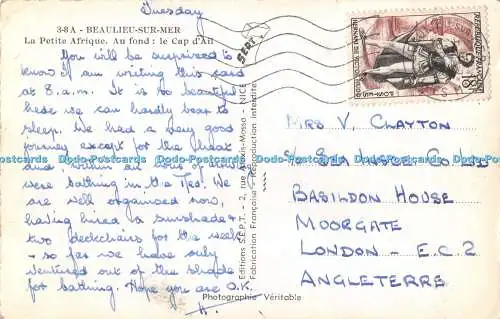 Tuesday
3-8A - BEAULIEU-SUR-MER
La Petite Afrique. Au fond : le Cap d'Ail
You will be surprised to
know I am writing this card
at 8.a.m. It is so beautiful
here we can hardly bear to
sleep. We had a very good
journey except for the heat
and within an hour of
were bathing in the
are well organised now,
having hired a sunshade &
two deckchairs for the week
- so far we have only
ventured out of the shade
for bathing. Hope you are O.K.
H.
Photographie Véritable
Editions S.E.P.T. - 2, rue - NICE
Fabrication Française - Reproduction interdite
SEPT
REPUBLIQUE FRANÇAISE
MRS V. CLAYTON
LONDON - E.C.2
BASILDON HOUSE
MOORGATE
ANGLETERRE
Dodo-Postcards Dodo-Postcards Dodo-Postcards Dodo-Postcards Dodo-Postcards